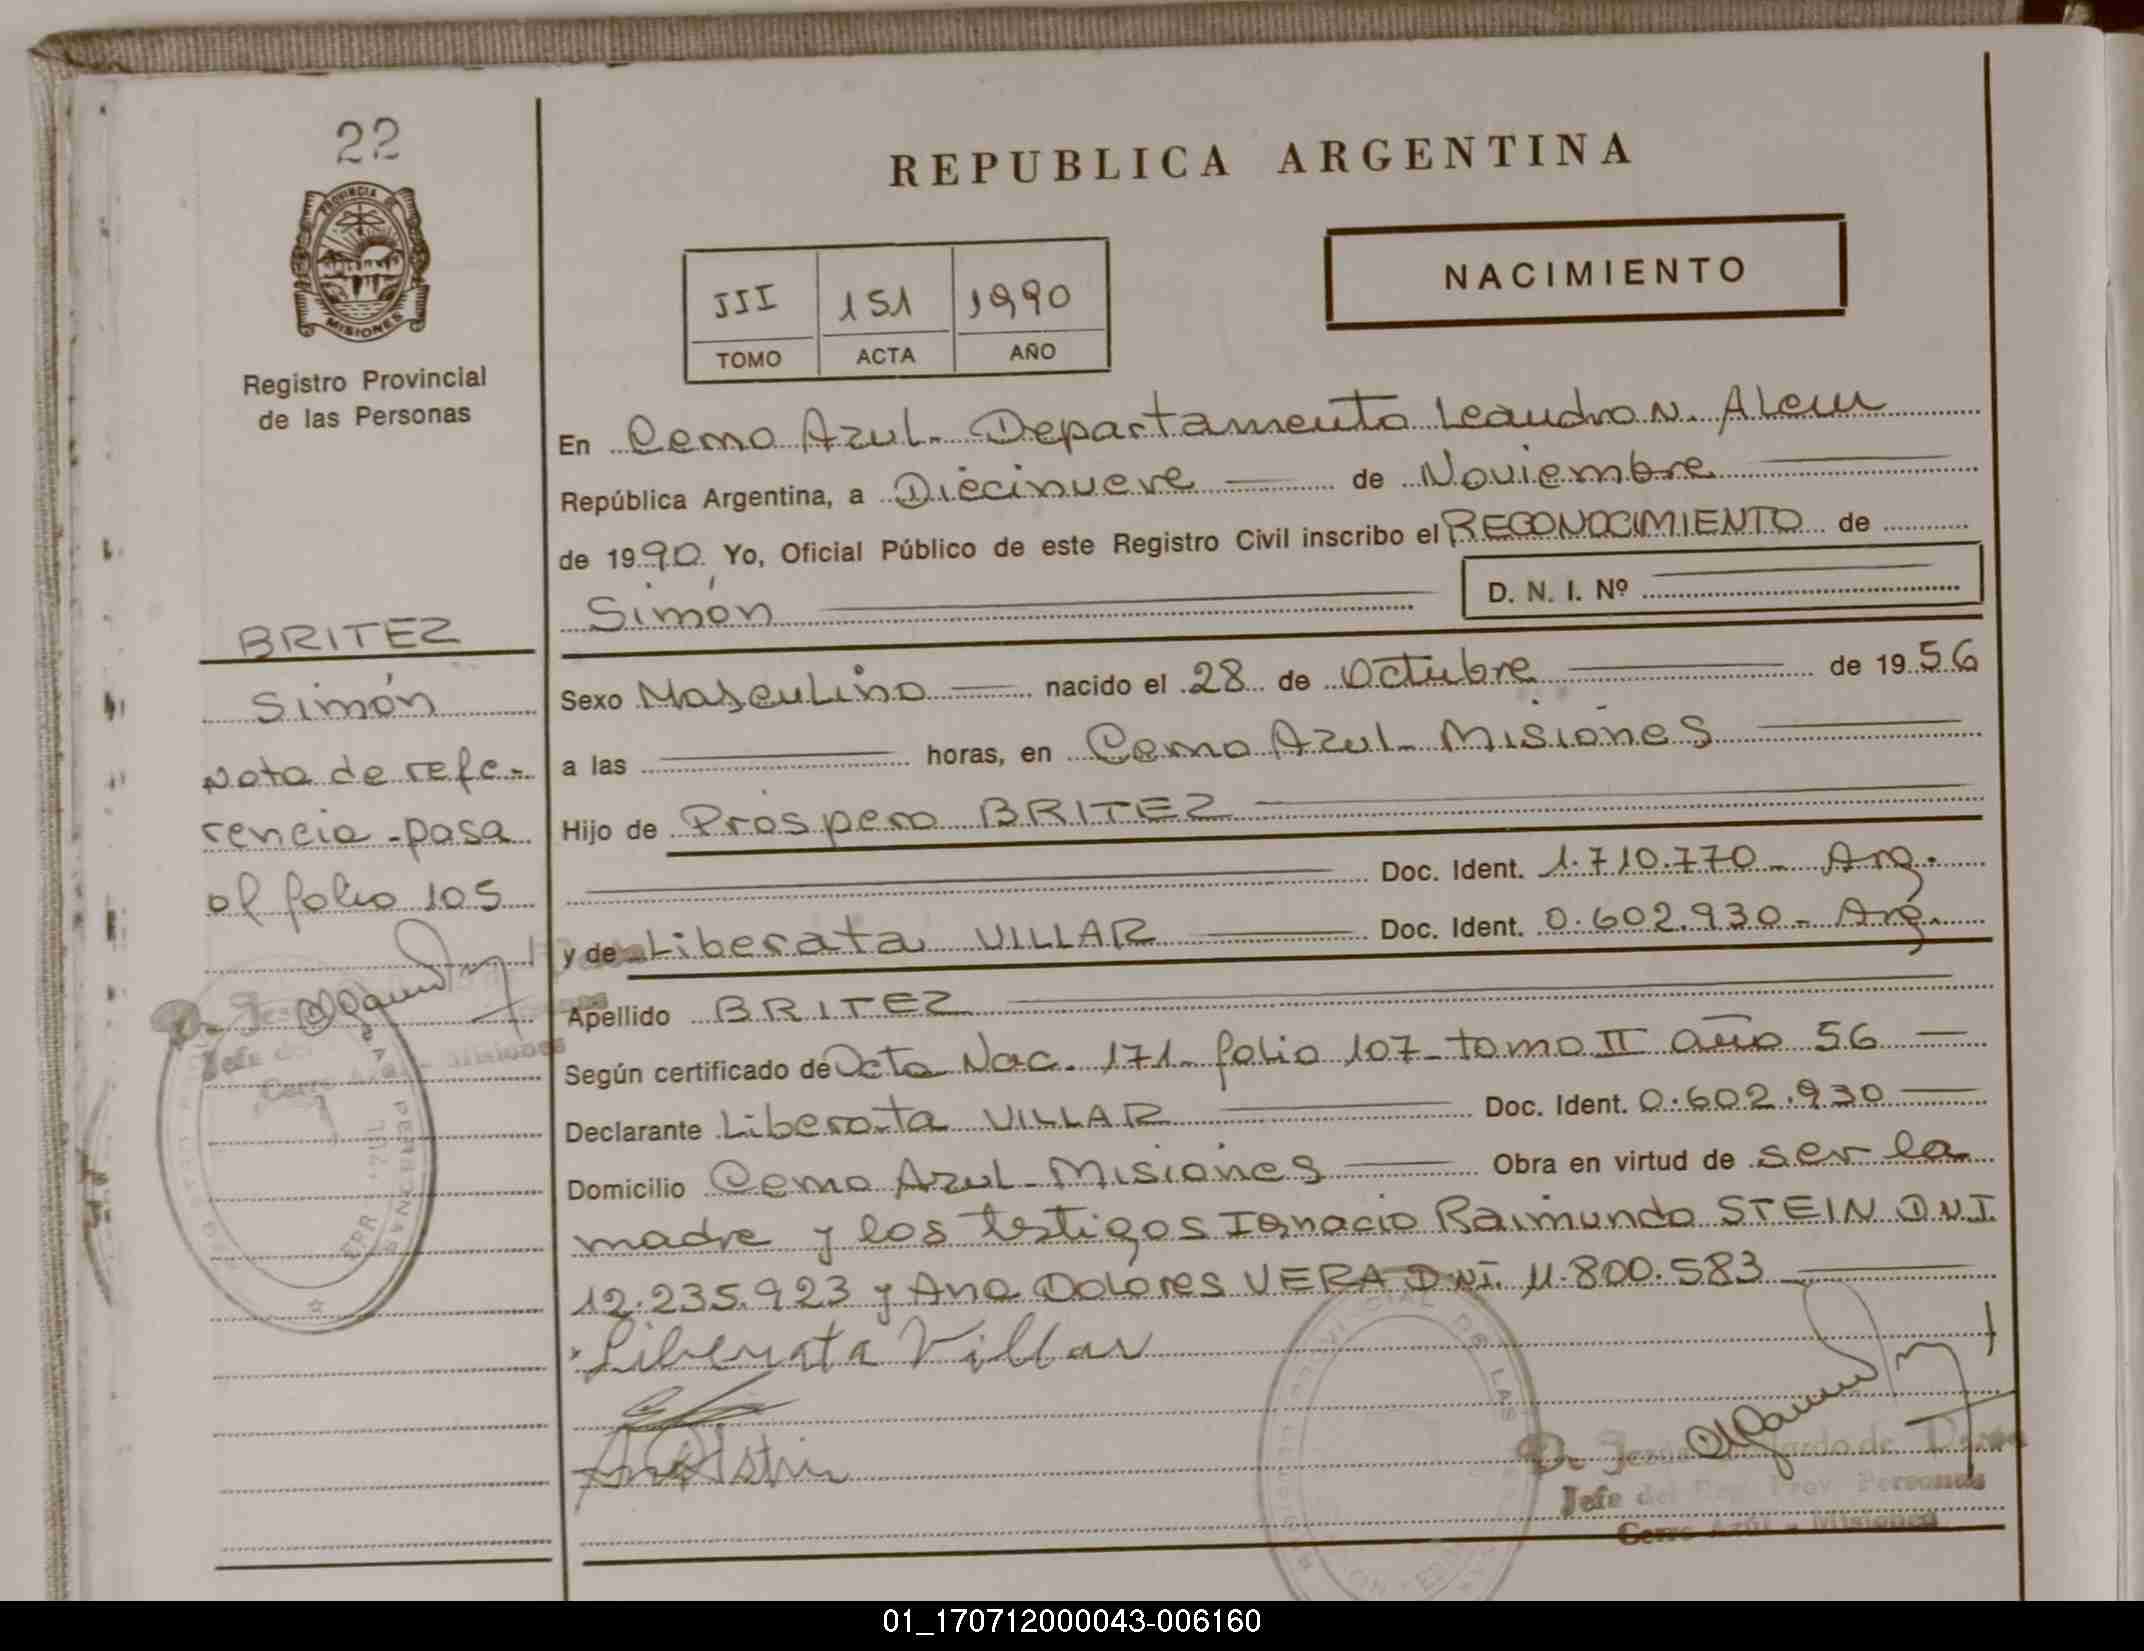 22
PROVINCIA DE
MISIONES
Registro Provincial
de las Personas
BRITEZ
Simón
Nota de refe-
rencia - pasa
al folio 105
REPUBLICA ARGENTINA
III 151 1990
TOMO ACTA AÑO
NACIMIENTO
En Cerro Azul - Departamento Leandro N. Alem
República Argentina, a Diecinueve de Noviembre
de 1990 Yo, Oficial Público de este Registro Civil inscribo el RECONOCIMIENTO de
Simón D. N. I. Nº
Sexo Masculino nacido el 28 de Octubre de 1956
a las horas, en Cerro Azul - Misiones
Hijo de Próspero BRITEZ
Doc. Ident. 1.710.770 - Arg.
y de Liberata VILLAR Doc. Ident. 0.602.930 - Arg.
Apellido BRITEZ
Según certificado de Acta Nac. 171 - folio 107 - tomo II año 56
Declarante Liberata VILLAR Doc. Ident. 0.602.930
Domicilio Cerro Azul - Misiones Obra en virtud de ser la
madre y los testigos Ignacio Raimundo STEIN D.N.I.
12.235.923 y Ana Dolores VERA D.N.I. 11.800.583
Liberata Villar
Jefe del Reg. Prov. Personas
Cerro Azul - Misiones
01_170712000043-006160